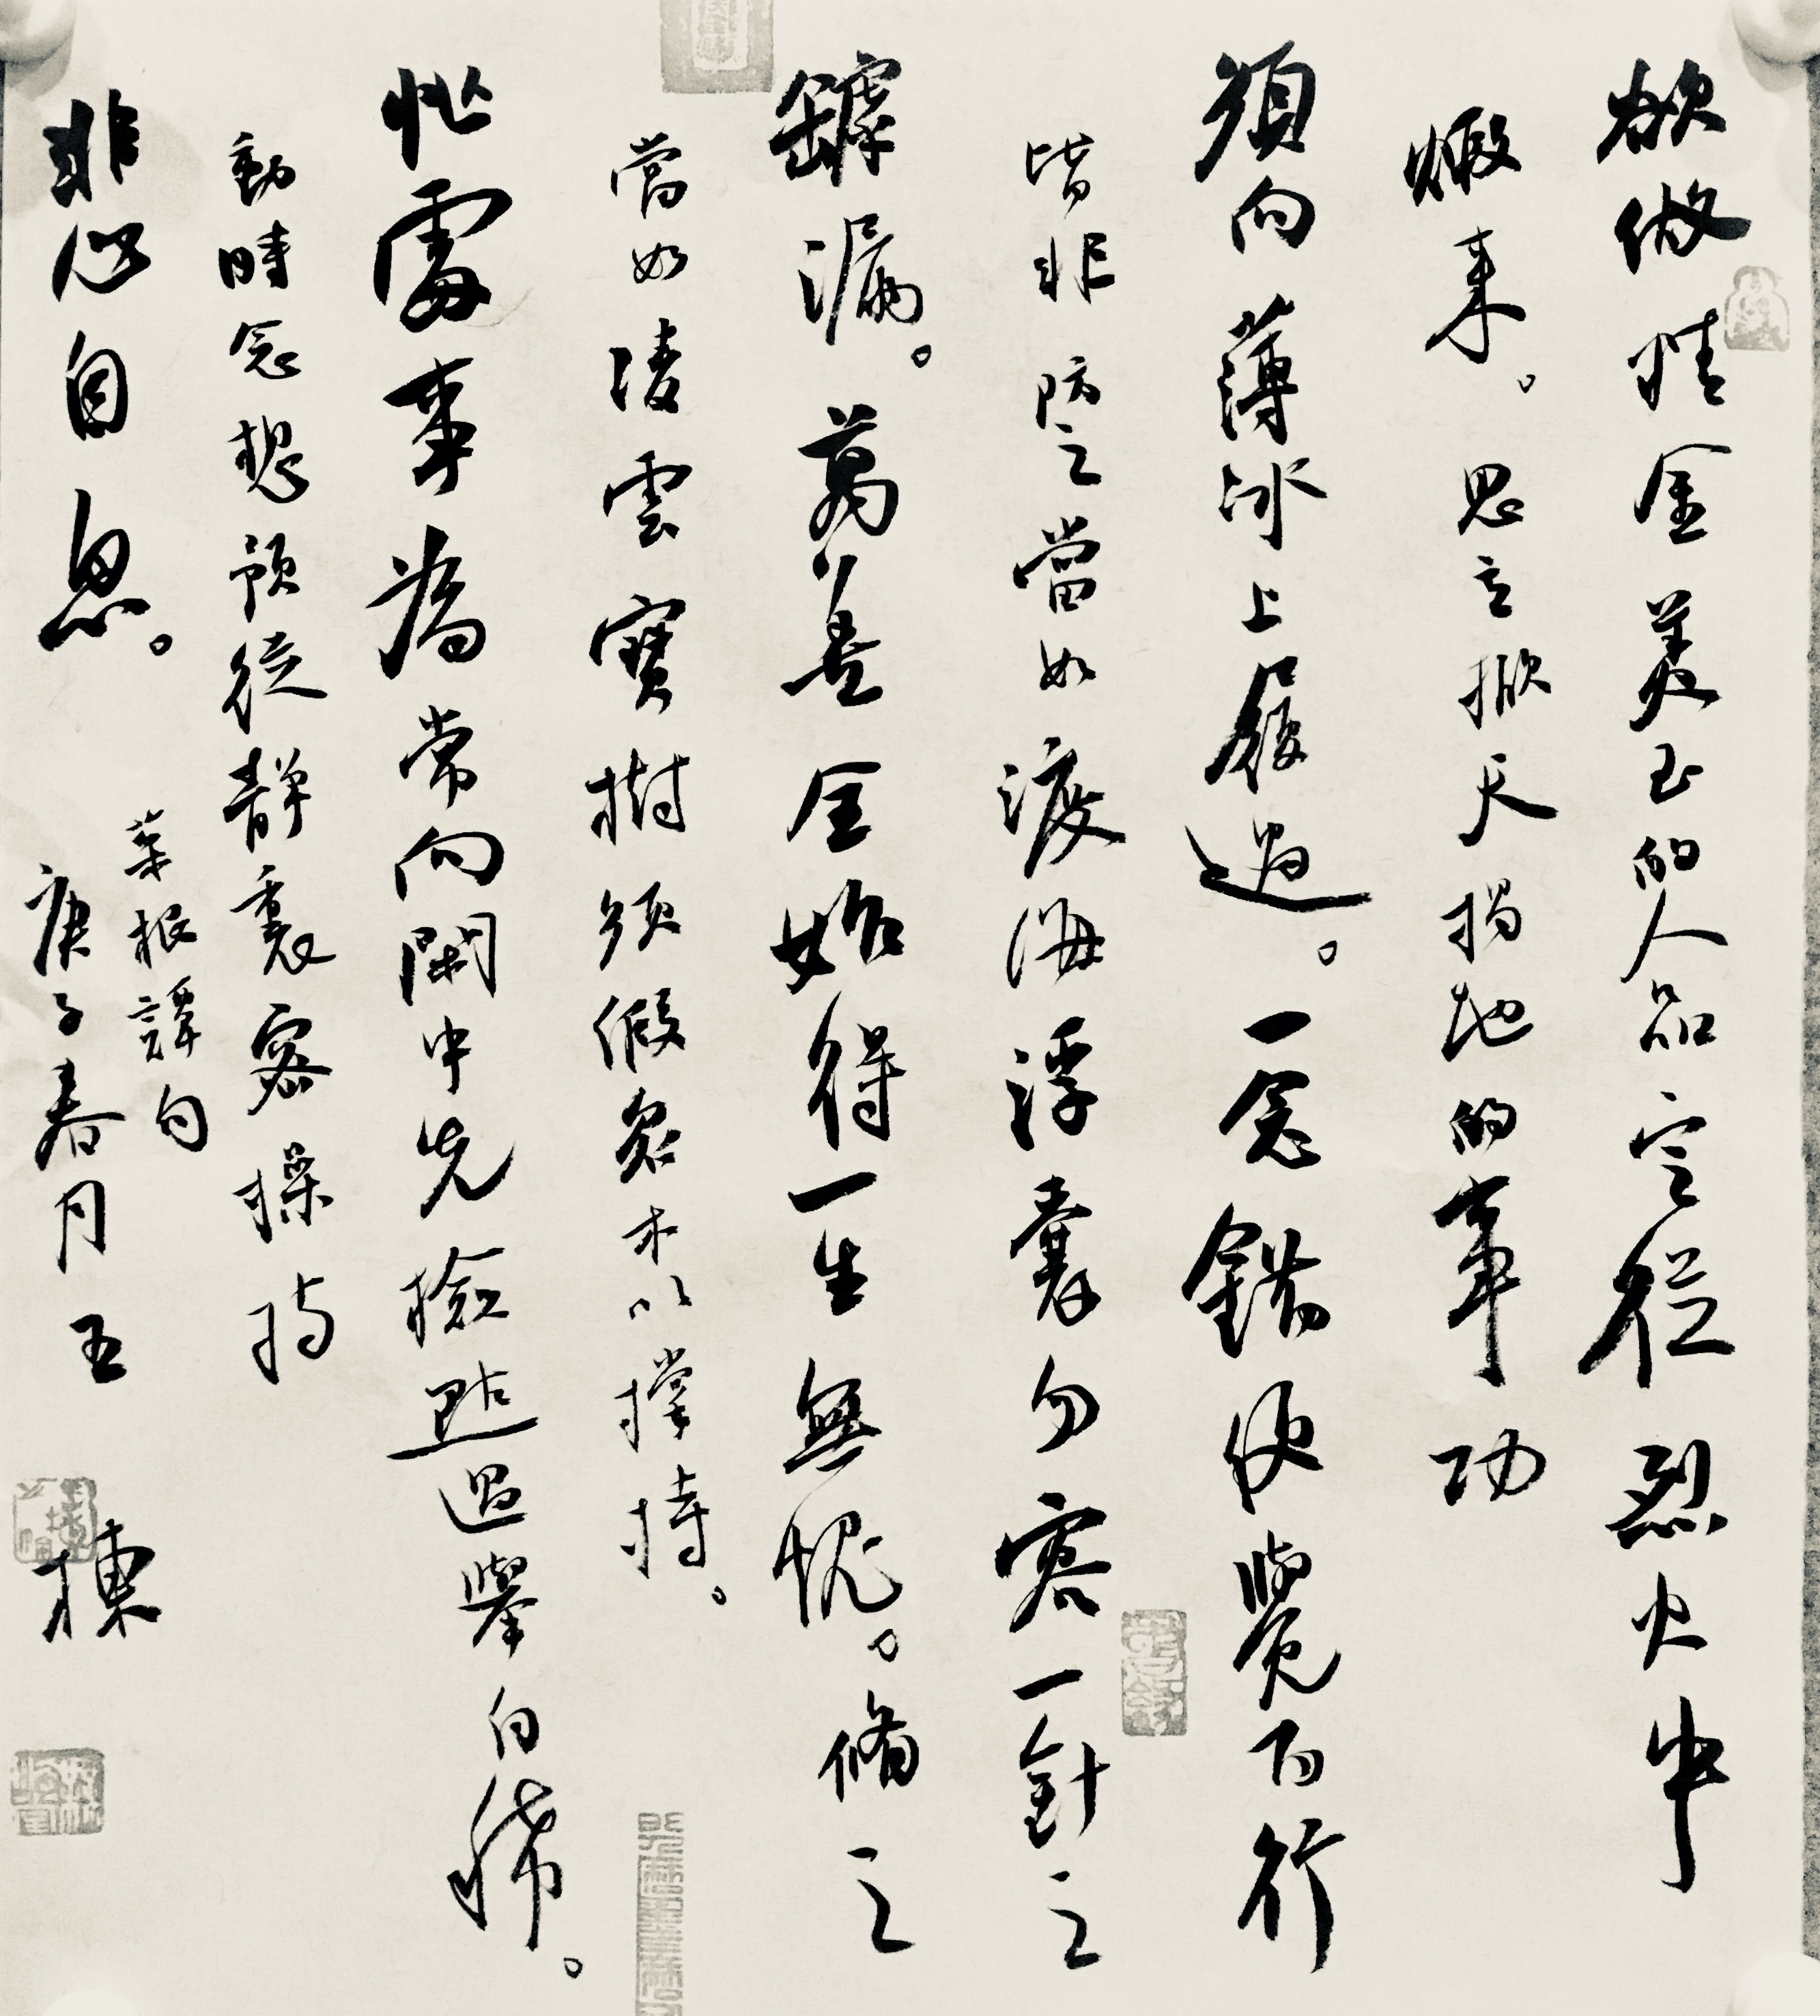 欲做精金美玉的人品定從烈火中
煅来。思立掀天揭地的事功
須向薄冰上履過。一念錯便覺百行
皆非防之當如渡海浮囊勿容一針之
罅漏。萬善全始得一生無愧。脩之
當如凌雲寶樹須假衆木以撐持。
忙處事為常向閑中先檢點過舉自稀。
動時念想預從靜裏密操持
非心自息。
菜根譚句
庚子春月王棟